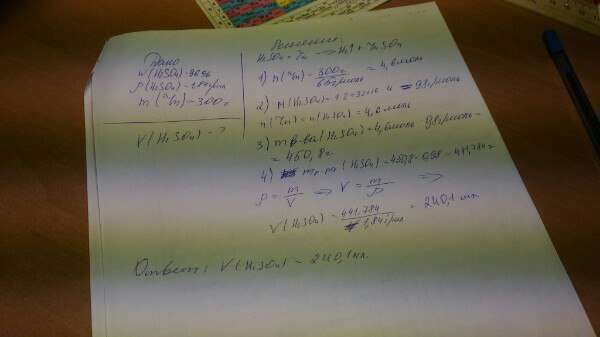 Дано
Решение:
w(H₂SO₄)-96%
ρ(H₂SO₄)-1,84г/мл
m(Zn)-300г
V(H₂SO₄)-?
H₂SO₄+Zn → H₂↑+ZnSO₄
1) n(Zn)=300г/65г/моль=4,6моль
2) M(H₂SO₄)= 98г/моль
n(Zn)=n(H₂SO₄)=4,6моль
3) m в-ва(H₂SO₄)=4,6моль·98г/моль=
=450,8г.
4) m р-ра(H₂SO₄)=450,8·0,98=441,784г
ρ=m/V ⇒ V=m/ρ ⇒
V(H₂SO₄)=441,784/1,84г/мл=240,1мл.
Ответ: V(H₂SO₄)=240,1мл.